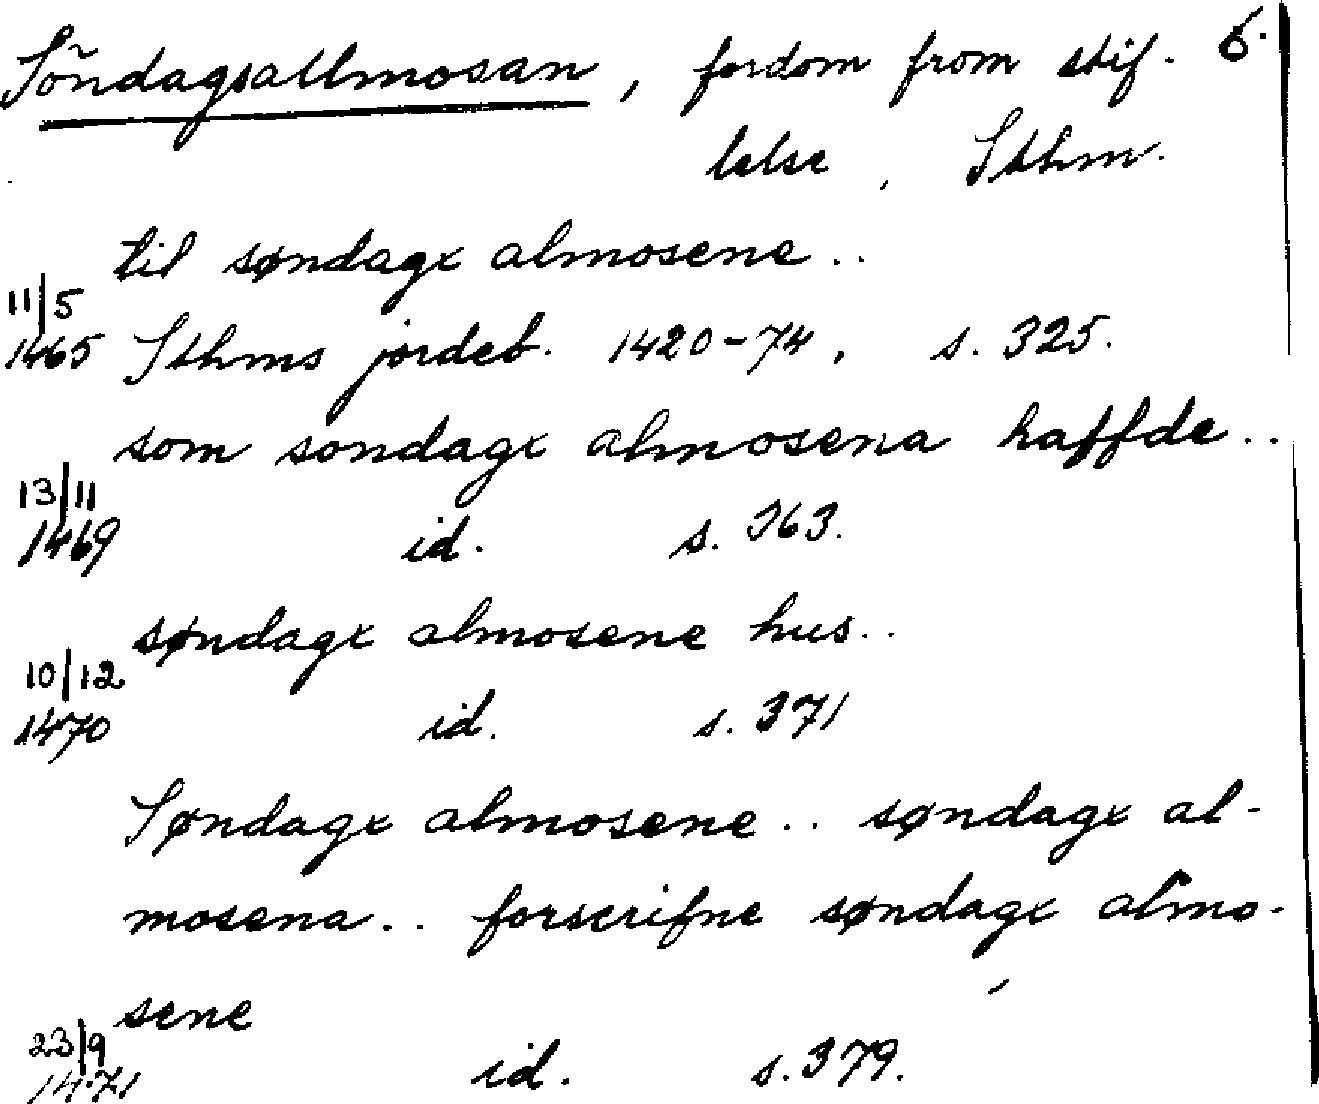 Söndagsallmosan, fordom from stif- 6.
telse, Sthm.
til søndagx almosene..
11/5
1465 Sthms jordeb. 1420-74, s. 325.
som sondagx almosena haffde..
13/11
1469 id. s. 363.
søndagx almosene hus..
10/12
1470 id. s. 371
Søndagx almosene.. søndagx al-
mosena.. forscrifne søndagx almo-
sene
23/9
1471 id. s. 379.